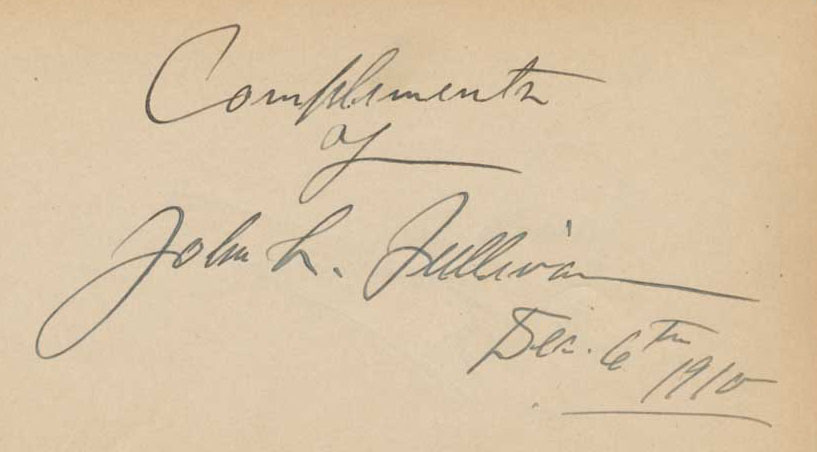 Complements
of
John L. Sullivan
Dec. 6th
1910